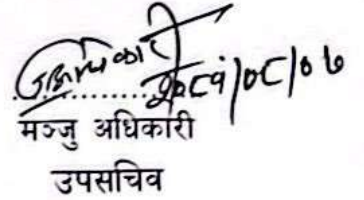 २०८१/०८/०७
मञ्जु अधिकारी
उपसचिव